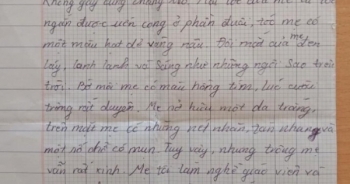 không gầy cũng chẳng
ngắn được uốn cong ở phần đuôi, tóc mẹ có
một màu hạt dẻ vàng nâu. Đôi mắt của mẹ đen
láy, lanh lanh và sáng như những ngôi sao trên
trời. Bờ môi mẹ có màu hồng tím, lúc cười
trông rất duyên. Mẹ sở hữu một da trắng,
trên mặt mẹ có những nét nhăn, tàn nhang và
một số chỗ có mụn. Tuy vậy, nhưng trông mẹ
vẫn rất xinh. Mẹ tôi làm nghề giáo viên và